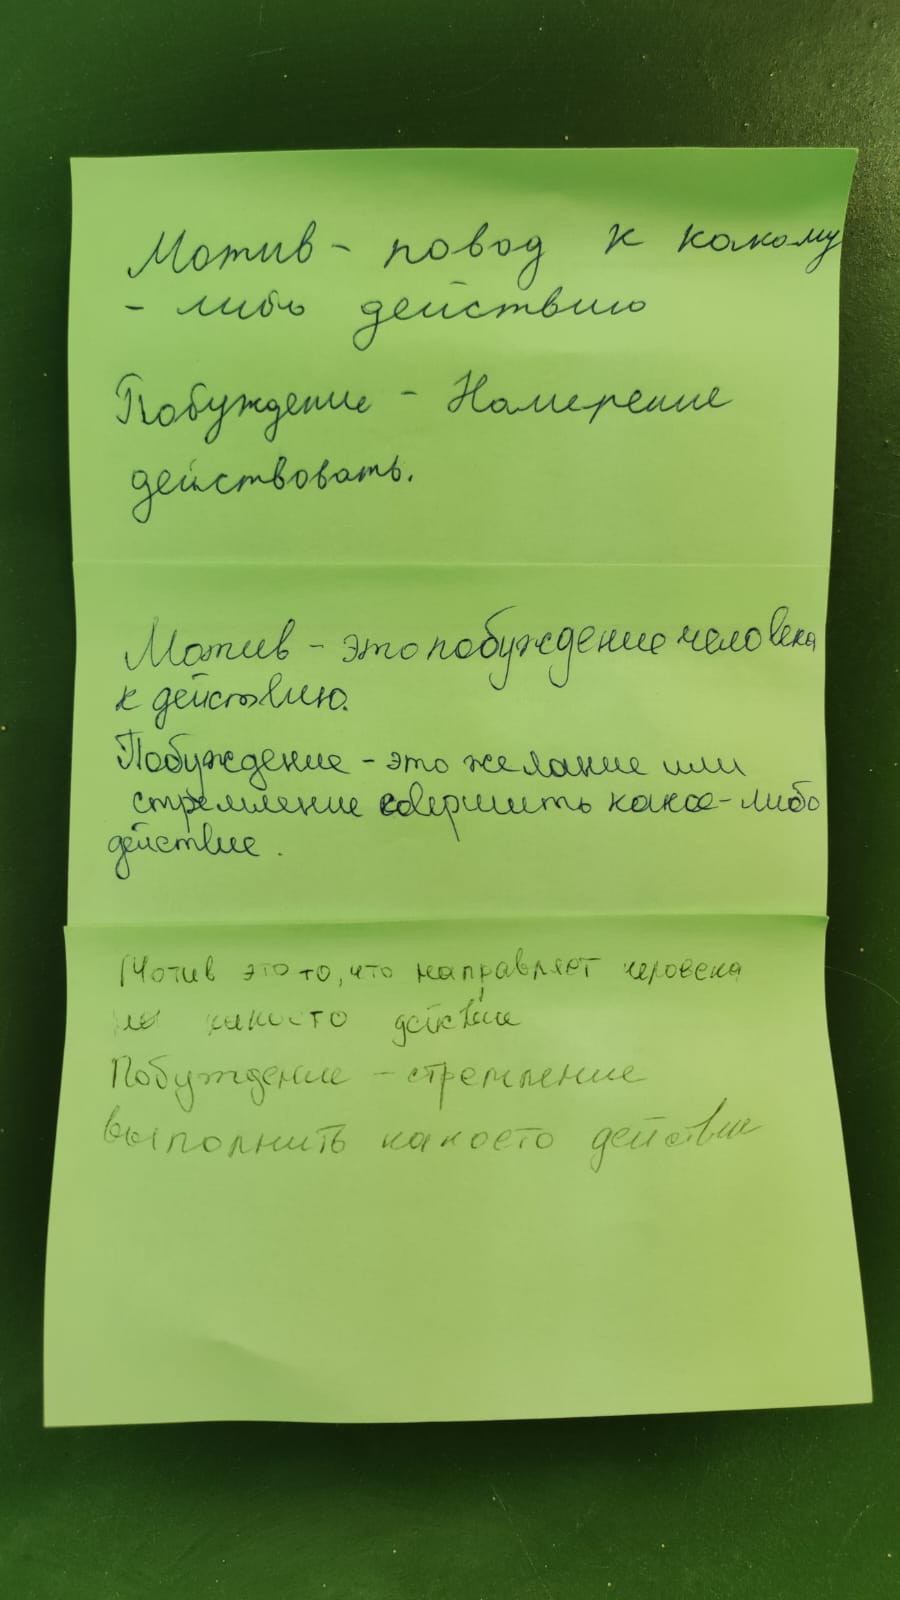 Мотив - повод к какому
- либо действию
Побуждение - Намерение
действовать.
Мотив - это побуждение человека
к действию.
Побуждение - это желание или
стремление совершить какое-либо
действие.
Мотив это то, что направляет человека
на какоето действие
Побуждение - стремление
выполнить какоето действие